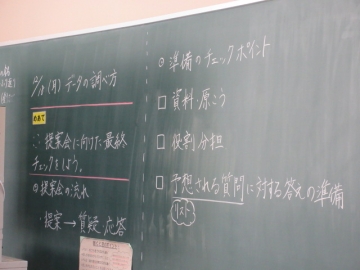 (月) データの調べ方
めあて
提案会に向けた最終
チェックをしよう。
提案会の流れ
・提案 → 質疑・応答
○準備のチェックポイント
□ 資料・原こう
□ 役割分担
□ 予想される質問に対する答えの準備
リスト